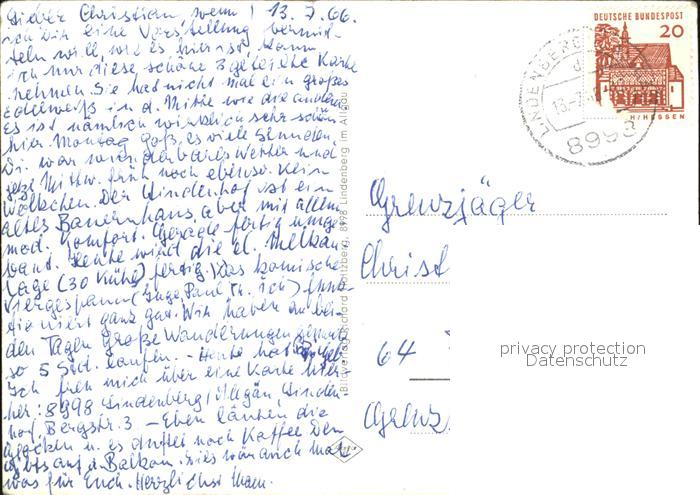 Lieber Christian, wenn 13.7.66.
ich Dir eine Vorstellung vermit-
teln will, wie es hier ist, kann
ich nur diese schöne 3geteilte Karte
nehmen. Sie hat nicht mal ein großes
Edelweiß in d. Mitte wie die anderen
Es ist nämlich wirklich sehr schön
hier. Montag goß es viele Stunden,
Di. war wunderbares Wetter und
jetzt Mittw. früh noch ebenso. Kein
Wölkchen. Der Lindenhof ist ein
altes Bauernhaus, aber mit allem
mod. Komfort. Gerade fertig umge-
baut. Heute wird die el. Melkan-
lage (30 Kühe) fertig. Das komische
Viergespann (Inge, Paul, ich) funk-
tioniert ganz gut. Wir haben an bei-
den Tagen große Wanderungen gemacht
so 5 Std. laufen. - Heute hat
Ich freu mich über eine Karte hier-
her: 8998 Lindenberg / Allgäu, Linden-
hof, Bergstr. 3 - Eben läuten die
Glocken u. es duftet nach Kaffee. Den
gibts auf d. Balkon. Dies wär auch mal
was für Euch. Herzlichst Mam.
Bildverlag 8998 Lindenberg im Allgäu
LINDENBERG
13.-7.
8998
DEUTSCHE BUNDESPOST
20
H/HESSEN
Grenzjäger
Christ
64
Grenz
privacy protection
Datenschutz